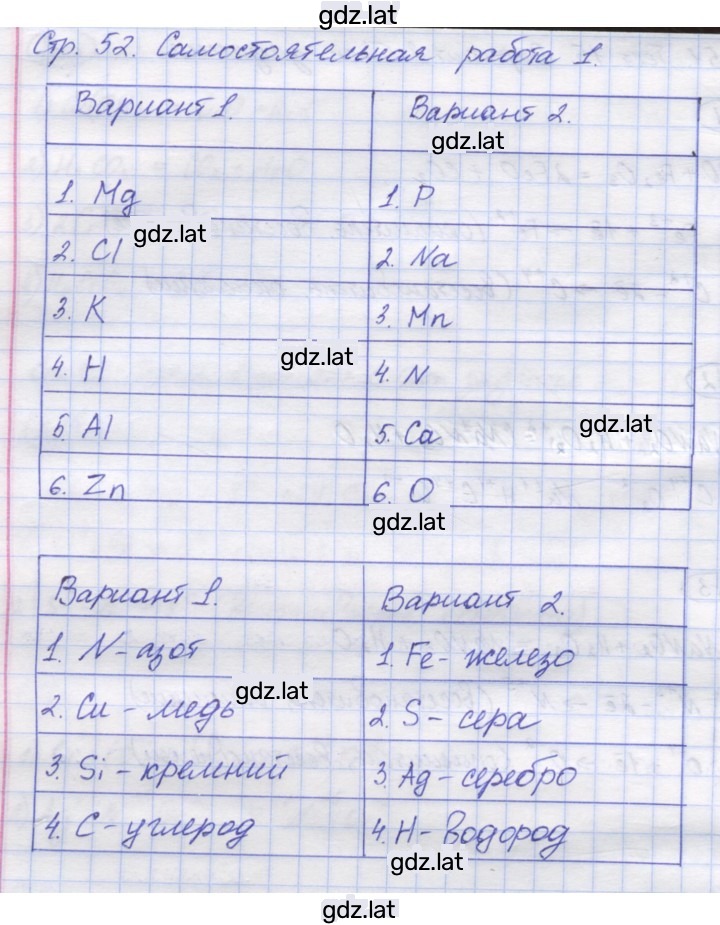 gdz.lat
Стр. 52. Самостоятельная работа 1.
Вариант 1. Вариант 2.
gdz.lat
1. Mg 1. P
gdz.lat
2. Cl 2. Na
3. K 3. Mn
gdz.lat
4. H 4. N
5. Al 5. Ca
gdz.lat
6. Zn 6. O
gdz.lat
Вариант 1. Вариант 2.
1. N - азот 1. Fe - железо
gdz.lat
2. Cu - медь 2. S - сера
3. Si - кремний 3. Ag - серебро
4. C - углерод 4. H - Водород
gdz.lat
gdz.lat